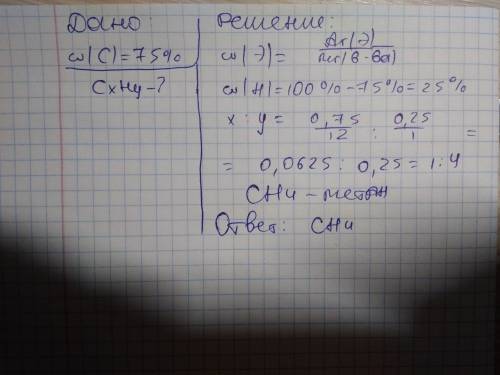 Дано:
ω(C)=75%
CxHy-?
Решение:
ω(Э)= Ar(Э) / Mr(в-ва)
ω(H)=100%-75%=25%
x:y= 0,75/12 : 0,25/1 =
= 0,0625:0,25=1:4
CH4-метан
Ответ: CH4